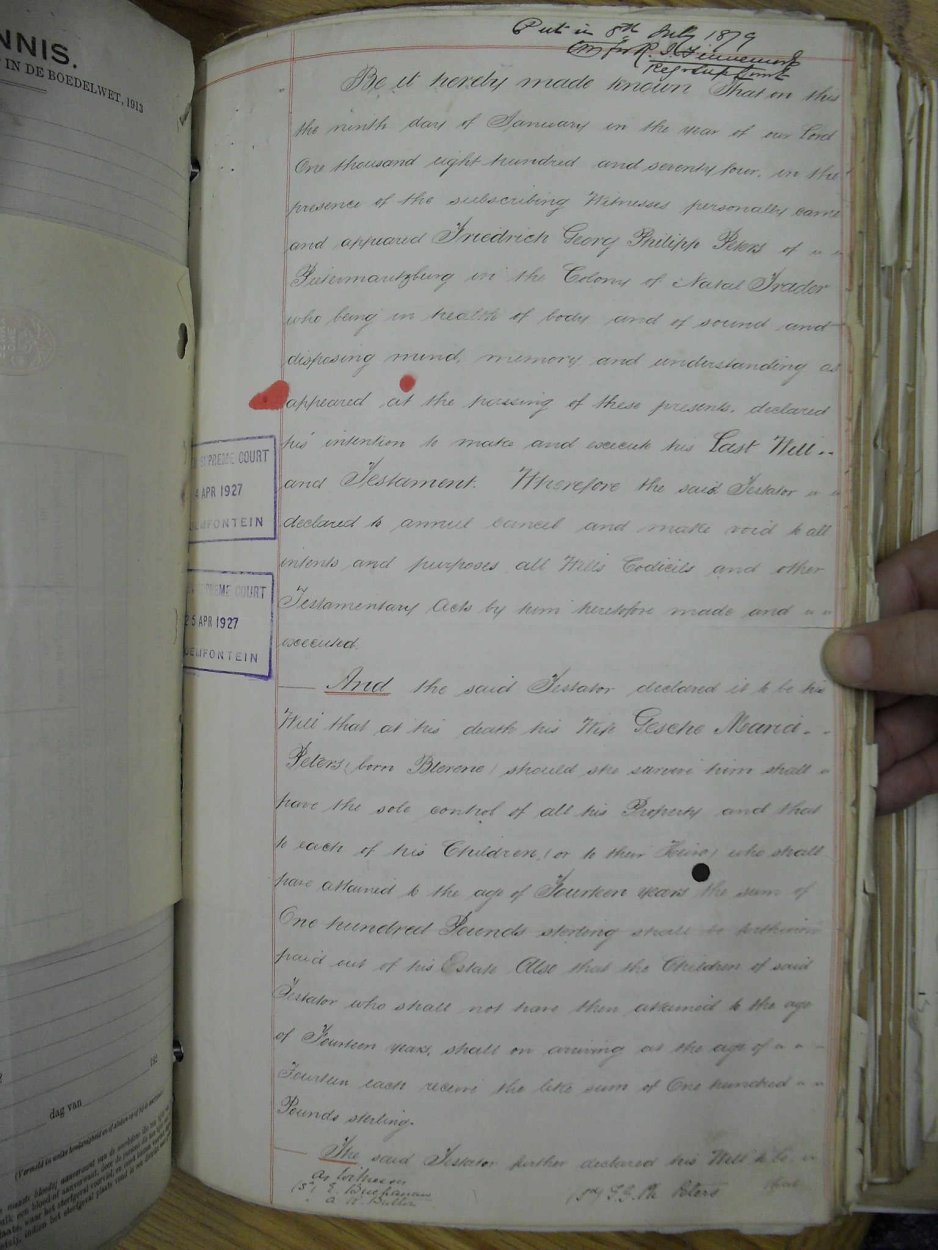 NNIS.
IN DE BOEDELWET, 1913
Put in 8th July 1879
Be it hereby made known That on this
the ninth day of January in the year of our Lord
One thousand eight hundred and seventy four. in the
presence of the subscribing Witnesses personally came
and appeared Friedrich Georg Philipp Peters of
Pietermaritzburg in the Colony of Natal Trader
who being in health of body and of sound and
disposing mind, memory and understanding as
appeared at the passing of these presents, declared
his intention to make and execute his Last Will
and Testament. Wherefore the said Testator
declared to annul cancel and make void to all
intents and purposes all Wills Codicils and other
Testamentary Acts by him heretofore made and
executed.
And the said Testator declared it to be his
Will that at his death his Wife Gesche Maria
Peters (born Blerene) should she survive him shall
have the sole control of all his Property and that
to each of his Children (or to their Heirs) who shall
have attained to the age of Fourteen years the sum of
One hundred Pounds sterling shall be
paid out of his Estate Also that the Children of said
Testator who shall not have then attained to the age
of Fourteen years, shall on arriving at the age of
Fourteen each receive the like sum of One hundred
Pounds sterling.
The said Testator further declared his Will to be
that
As Witnesses
(sd) E. Buchanan
(sd) F. G. Ph. Peters
SUPREME COURT
APR 1927
EMFONTEIN
SUPREME COURT
25 APR 1927
EMFONTEIN
dag van
192